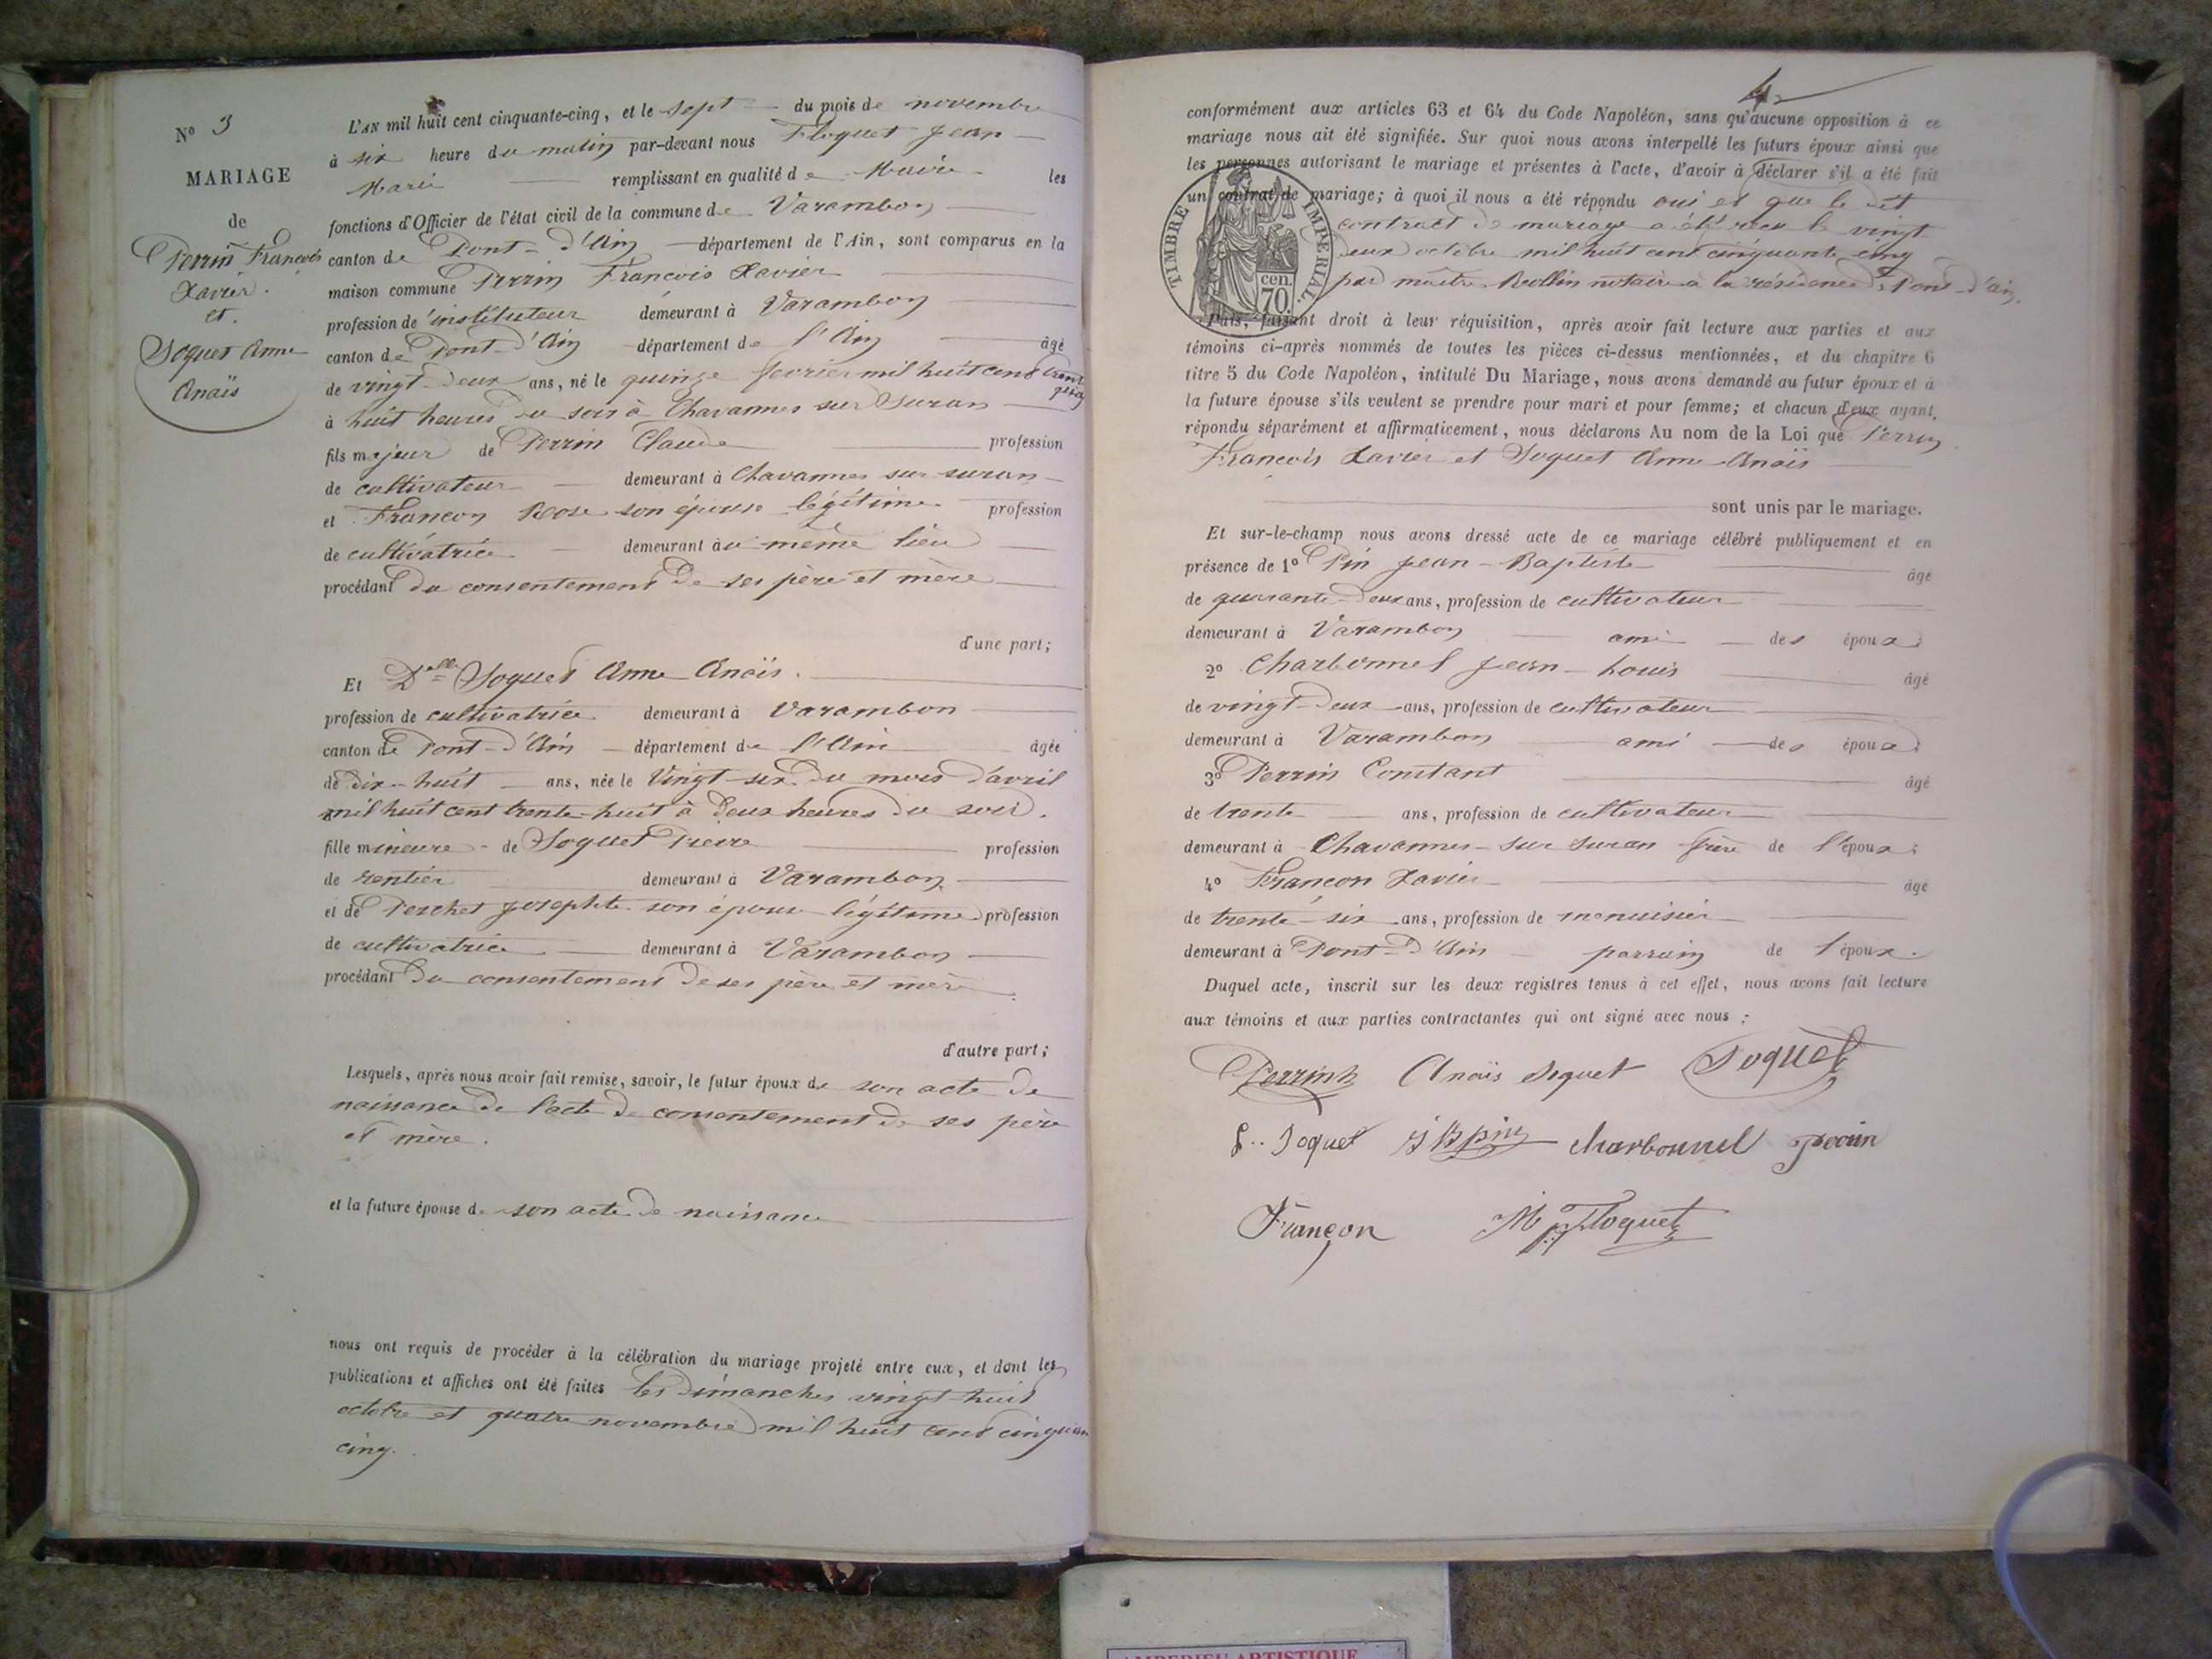 N° 3
MARIAGE
de
Perrin François
Xavier.
et.
Soquet Anne
Anaïs
L'AN mil huit cent cinquante-cinq, et le sept du mois de novembre
à six heure du matin par-devant nous Floquet Jean
Marie remplissant en qualité de Maire les
fonctions d'Officier de l'état civil de la commune de Varambon
canton de Pont-d'Ain département de l'Ain, sont comparus en la
maison commune Perrin François Xavier
profession de instituteur demeurant à Varambon
canton de Pont-d'Ain département de l'Ain âgé
de vingt-deux ans, né le quinze fevrier mil huit cent trente
à huit heures du soir à Chavannes sur Suran
fils majeur de Perrin Claude profession
de cultivateur demeurant à Chavannes sur suran
et Françon Rose son épouse légitime profession
de cultivatrice demeurant au même lieu
procédant du consentement de ses père et mère
d'une part;
Et Delle Soquet Anne Anaïs.
profession de cultivatrice demeurant à Varambon
canton de Pont-d'Ain département de l'Ain âgée
de dix-huit ans, née le Vingt-six du mois d'avril
mil huit cent trente-huit à deux heures du soir.
fille mineure de Soquet Pierre profession
de rentier demeurant à Varambon
et de Perchet Josephte son épouse légitime profession
de cultivatrice demeurant à Varambon
procédant du consentement de ses père et mère
d'autre part;
Lesquels, après nous avoir fait remise, savoir, le futur époux de son acte de
naissance de l'acte de consentement de ses père
et mère.
et la future épouse de son acte de naissance
nous ont requis de procéder à la célébration du mariage projeté entre eux, et dont les
publications et affiches ont été faites les dimanches vingt-huit
octobre et quatre novembre mil huit cent cinquante
cinq.
4
conformément aux articles 63 et 64 du Code Napoléon, sans qu'aucune opposition à ce
mariage nous ait été signifiée. Sur quoi nous avons interpellé les futurs époux ainsi que
les personnes autorisant le mariage et présentes à l'acte, d'avoir à déclarer s'il a été fait
un contrat de mariage; à quoi il nous a été répondu oui et que le dit
contract de mariage a été recu le vingt
deux octobre mil huit cent cinquante cinq
par maître Rollin notaire à la résidence de Pont-d'Ain.
TIMBRE IMPERIAL.
cen.
70.
Puis, faisant droit à leur réquisition, après avoir fait lecture aux parties et aux
témoins ci-après nommés de toutes les pièces ci-dessus mentionnées, et du chapitre 6
titre 5 du Code Napoléon, intitulé Du Mariage, nous avons demandé au futur époux et à
la future épouse s'ils veulent se prendre pour mari et pour femme; et chacun d'eux ayant
répondu séparément et affirmativement, nous déclarons Au nom de la Loi que Perrin
François Xavier et Soquet Anne-Anaïs
sont unis par le mariage.
Et sur-le-champ nous avons dressé acte de ce mariage célébré publiquement et en
présence de 1° Pin Jean-Baptiste âgé
de quarante-deux ans, profession de cultivateur
demeurant à Varambon ami des époux;
2° Charbonnel Jean-Louis âgé
de vingt-deux ans, profession de cultivateur
demeurant à Varambon ami des époux;
3° Perrin Constant âgé
de trente ans, profession de cultivateur
demeurant à Chavannes-sur Suran frère de l'époux;
4° Françon Xavier âgé
de trente-six ans, profession de menuisier
demeurant à Pont-d'Ain parrain de l'époux.
Duquel acte, inscrit sur les deux registres tenus à cet effet, nous avons fait lecture
aux témoins et aux parties contractantes qui ont signé avec nous;
Perrin Anaïs Soquet Soquet
Soquet J B Pin charbonnel perrin
Françon Floquet
AMPERIEU ARTISTIQUE